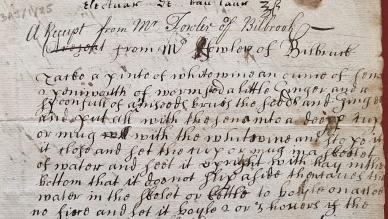 Electuar de
A Receipt from Mr Fowler of Bilbrook
from Mr Fowlow of Bilbrucke
Take a pinte of white wine an ounce of sena
2 peniworth of wormseed a little Ginger and a
spoonfull of aniseeds bruse the seeds and Ginger
and put all with the sena into a deepe cup
or mug with the white wine and stop
it close and set the cup or mug in a skelet
of water and set it upright with hay in the
bottom that it doe not slip aside then
water in the skelet or kettle to boyle on
no fire and let it boyle 2 or 3 howers if the